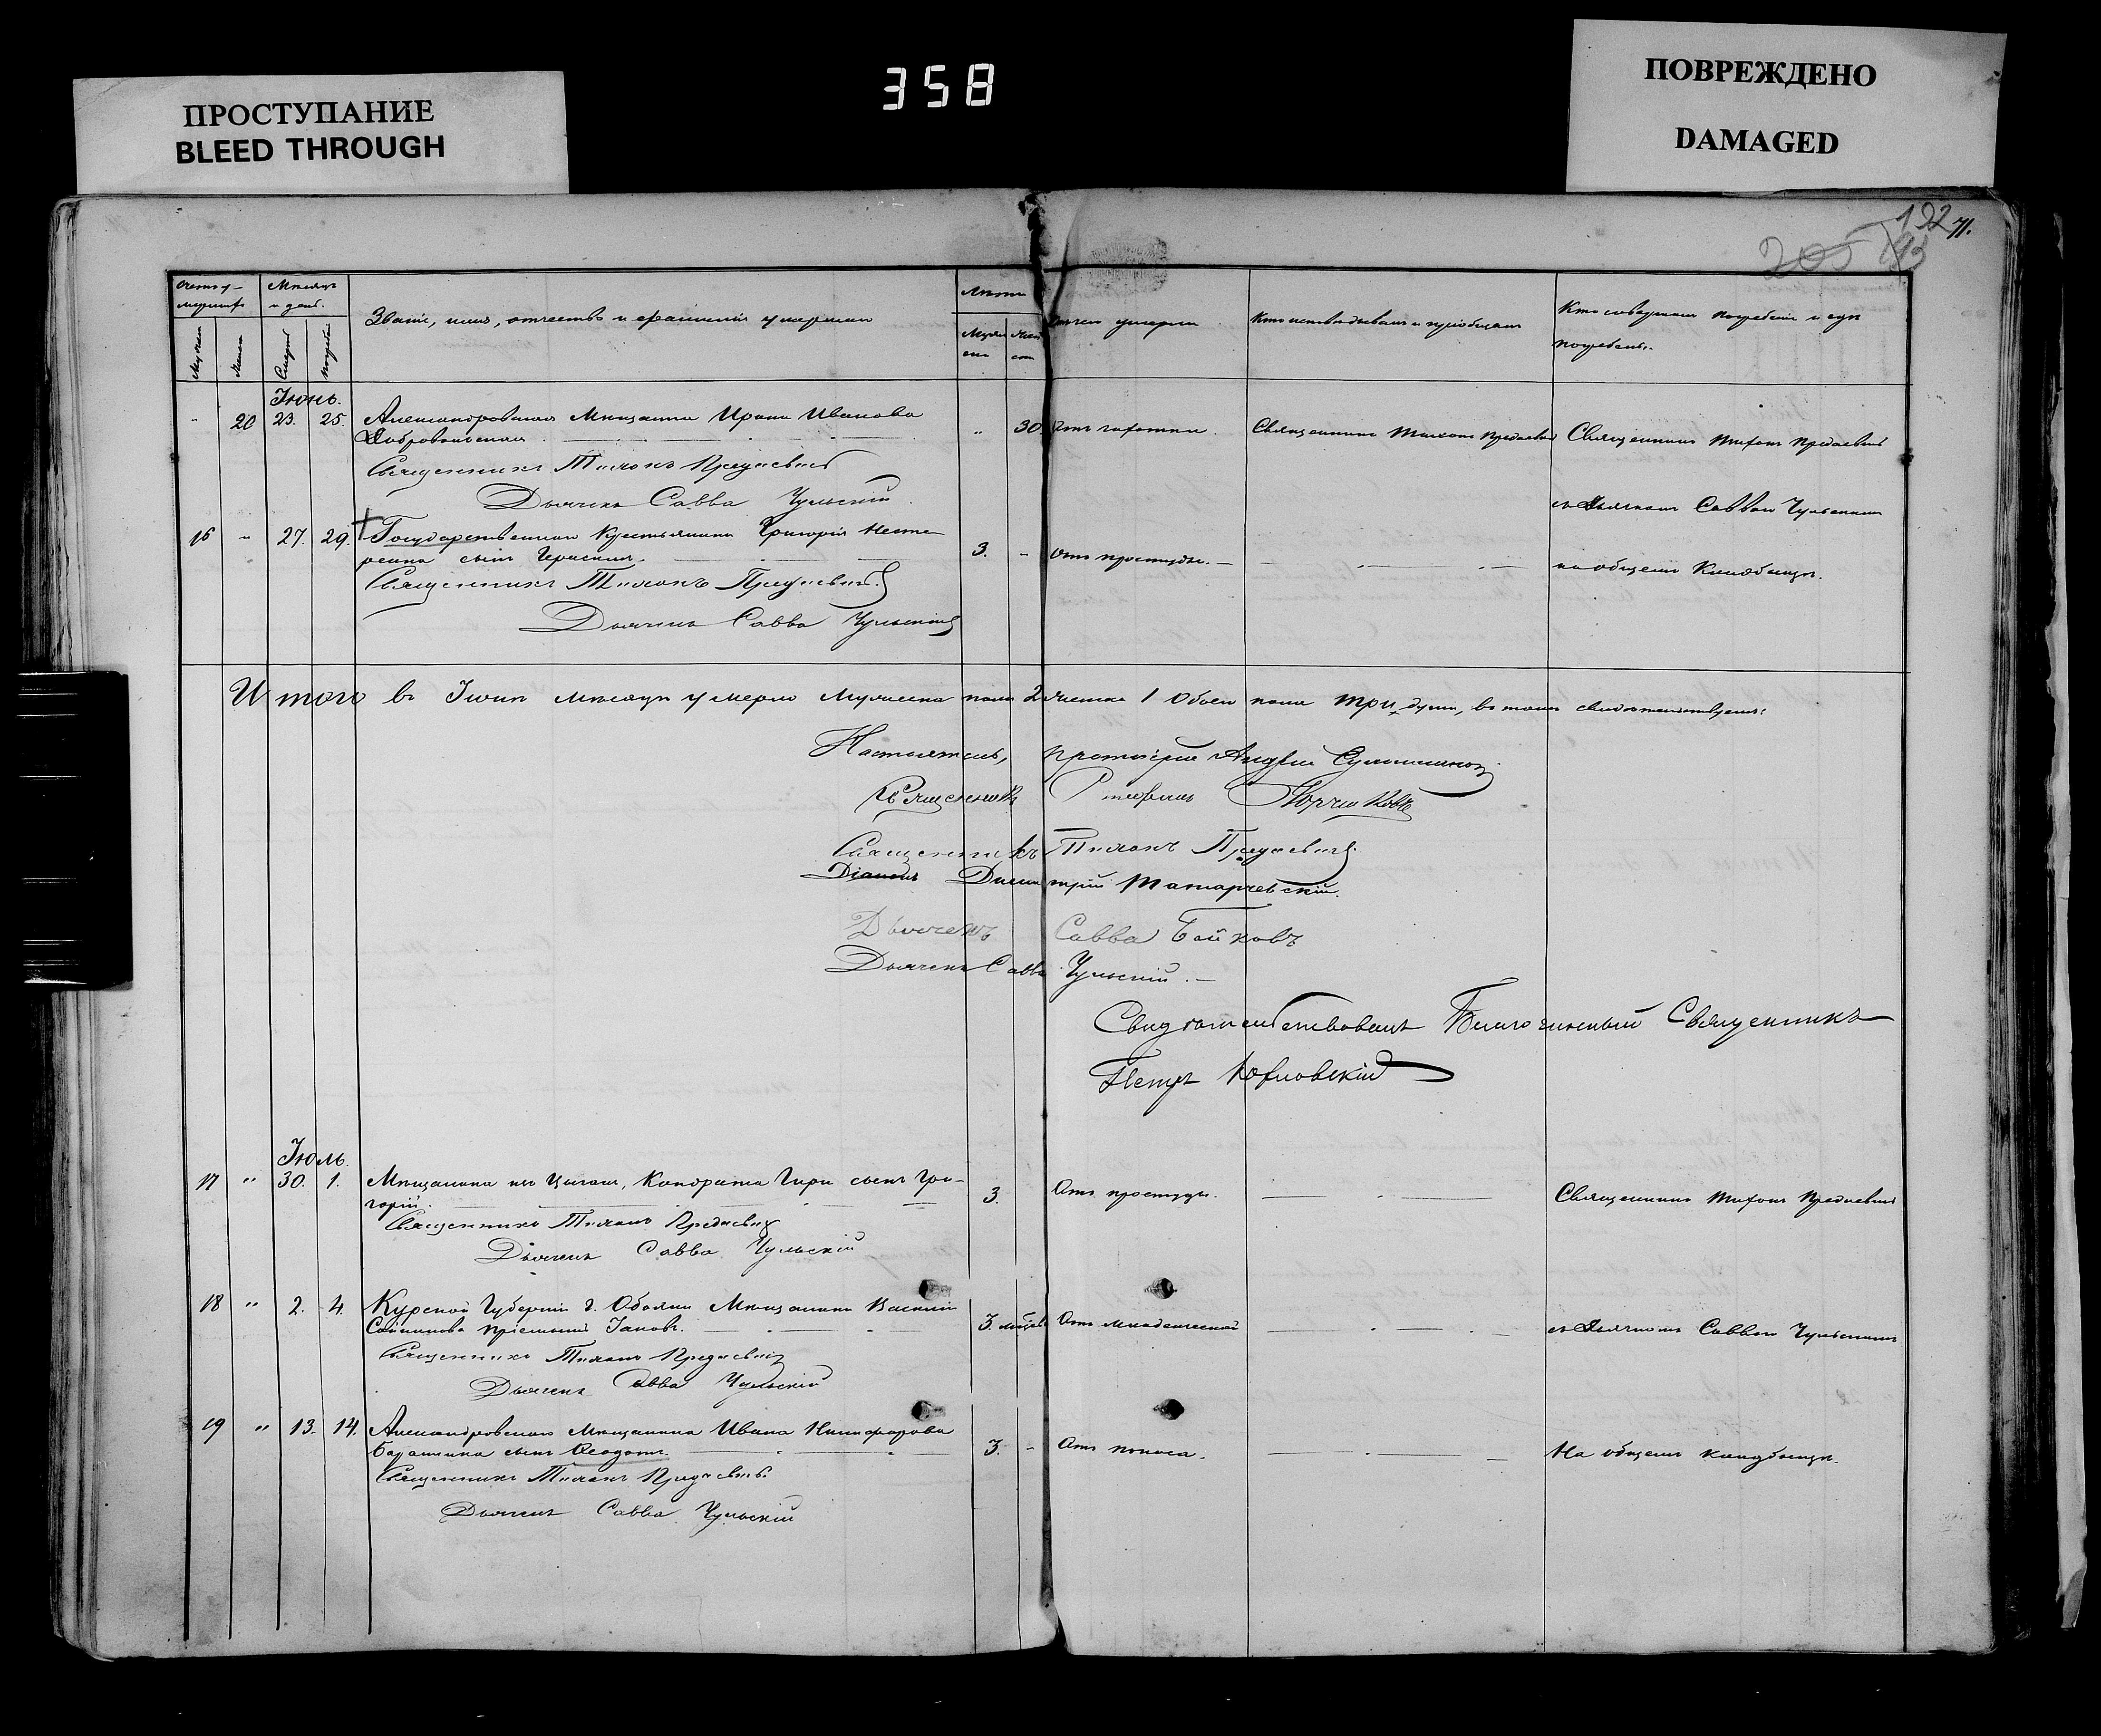 358
ПРОСТУПАНИЕ
BLEED THROUGH
ПОВРЕЖДЕНО
DAMAGED
192 71.
205
Мѣсяцъ и день.
Званіе, имя, отчество и фамилія умершаго
Лѣта
Отъ чего умерли
Кто исповѣдывалъ и пріобщалъ
Кто совершалъ погребеніе и гдѣ
погребены.
Іюнь.
20 23. 25. Александровская Мѣщанка Ирина Иванова
30 Отъ чахотки. Священникъ Тихонъ Священникъ Тихонъ
Священникъ Тихонъ
Дьячекъ Савва Чульскій
съ Дьячкомъ Саввою Чульскимъ
16 " 27. 29. Государственнаго Крестьянина Григорія Несте-
ренка сынъ Герасимъ. 3. - Отъ простуды. на общемъ Кладбищѣ.
Священникъ Тихонъ
Дьячекъ Савва Чульскій
Итого въ Іюнѣ мѣсяцѣ умерло Мужеска пола 2 женска 1 Обоего пола три души, въ томъ свидѣтельствуемъ:
Настоятель, протоіерей Андрей
Священникъ
Священникъ Тихонъ
Діаконъ Димитрій Татарчевскій.
Дьячекъ Савва Бойковъ
Дьячекъ Савва Чульскій.
Свидѣтельствовалъ Благочинный Священникъ
Петръ
Іюль.
17 " 30. 1. Мѣщанина изъ Цыганъ, Кондрата Гири сынъ Гри-
горій. 3. Отъ простуды. Священникъ Тихонъ
Священникъ Тихонъ
Дьячекъ Савва Чульскій
18 " 2. 4. Курской Губерніи г. Обояни Мѣщанина Василія
пріемышъ Іаковъ. 3. мѣсяц. Отъ младенческой съ Дьячкомъ Саввою Чульскимъ
Священникъ Тихонъ
Дьячекъ Савва Чульскій
19 " 13. 14. Александровскаго Мѣщанина Ивана Никифорова
сынъ Ѳеодотъ. 3. - Отъ поноса. На общемъ кладбищѣ.
Священникъ Тихонъ
Дьячекъ Савва Чульскій